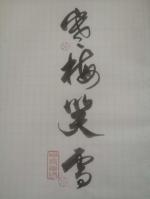 寒梅笑雪